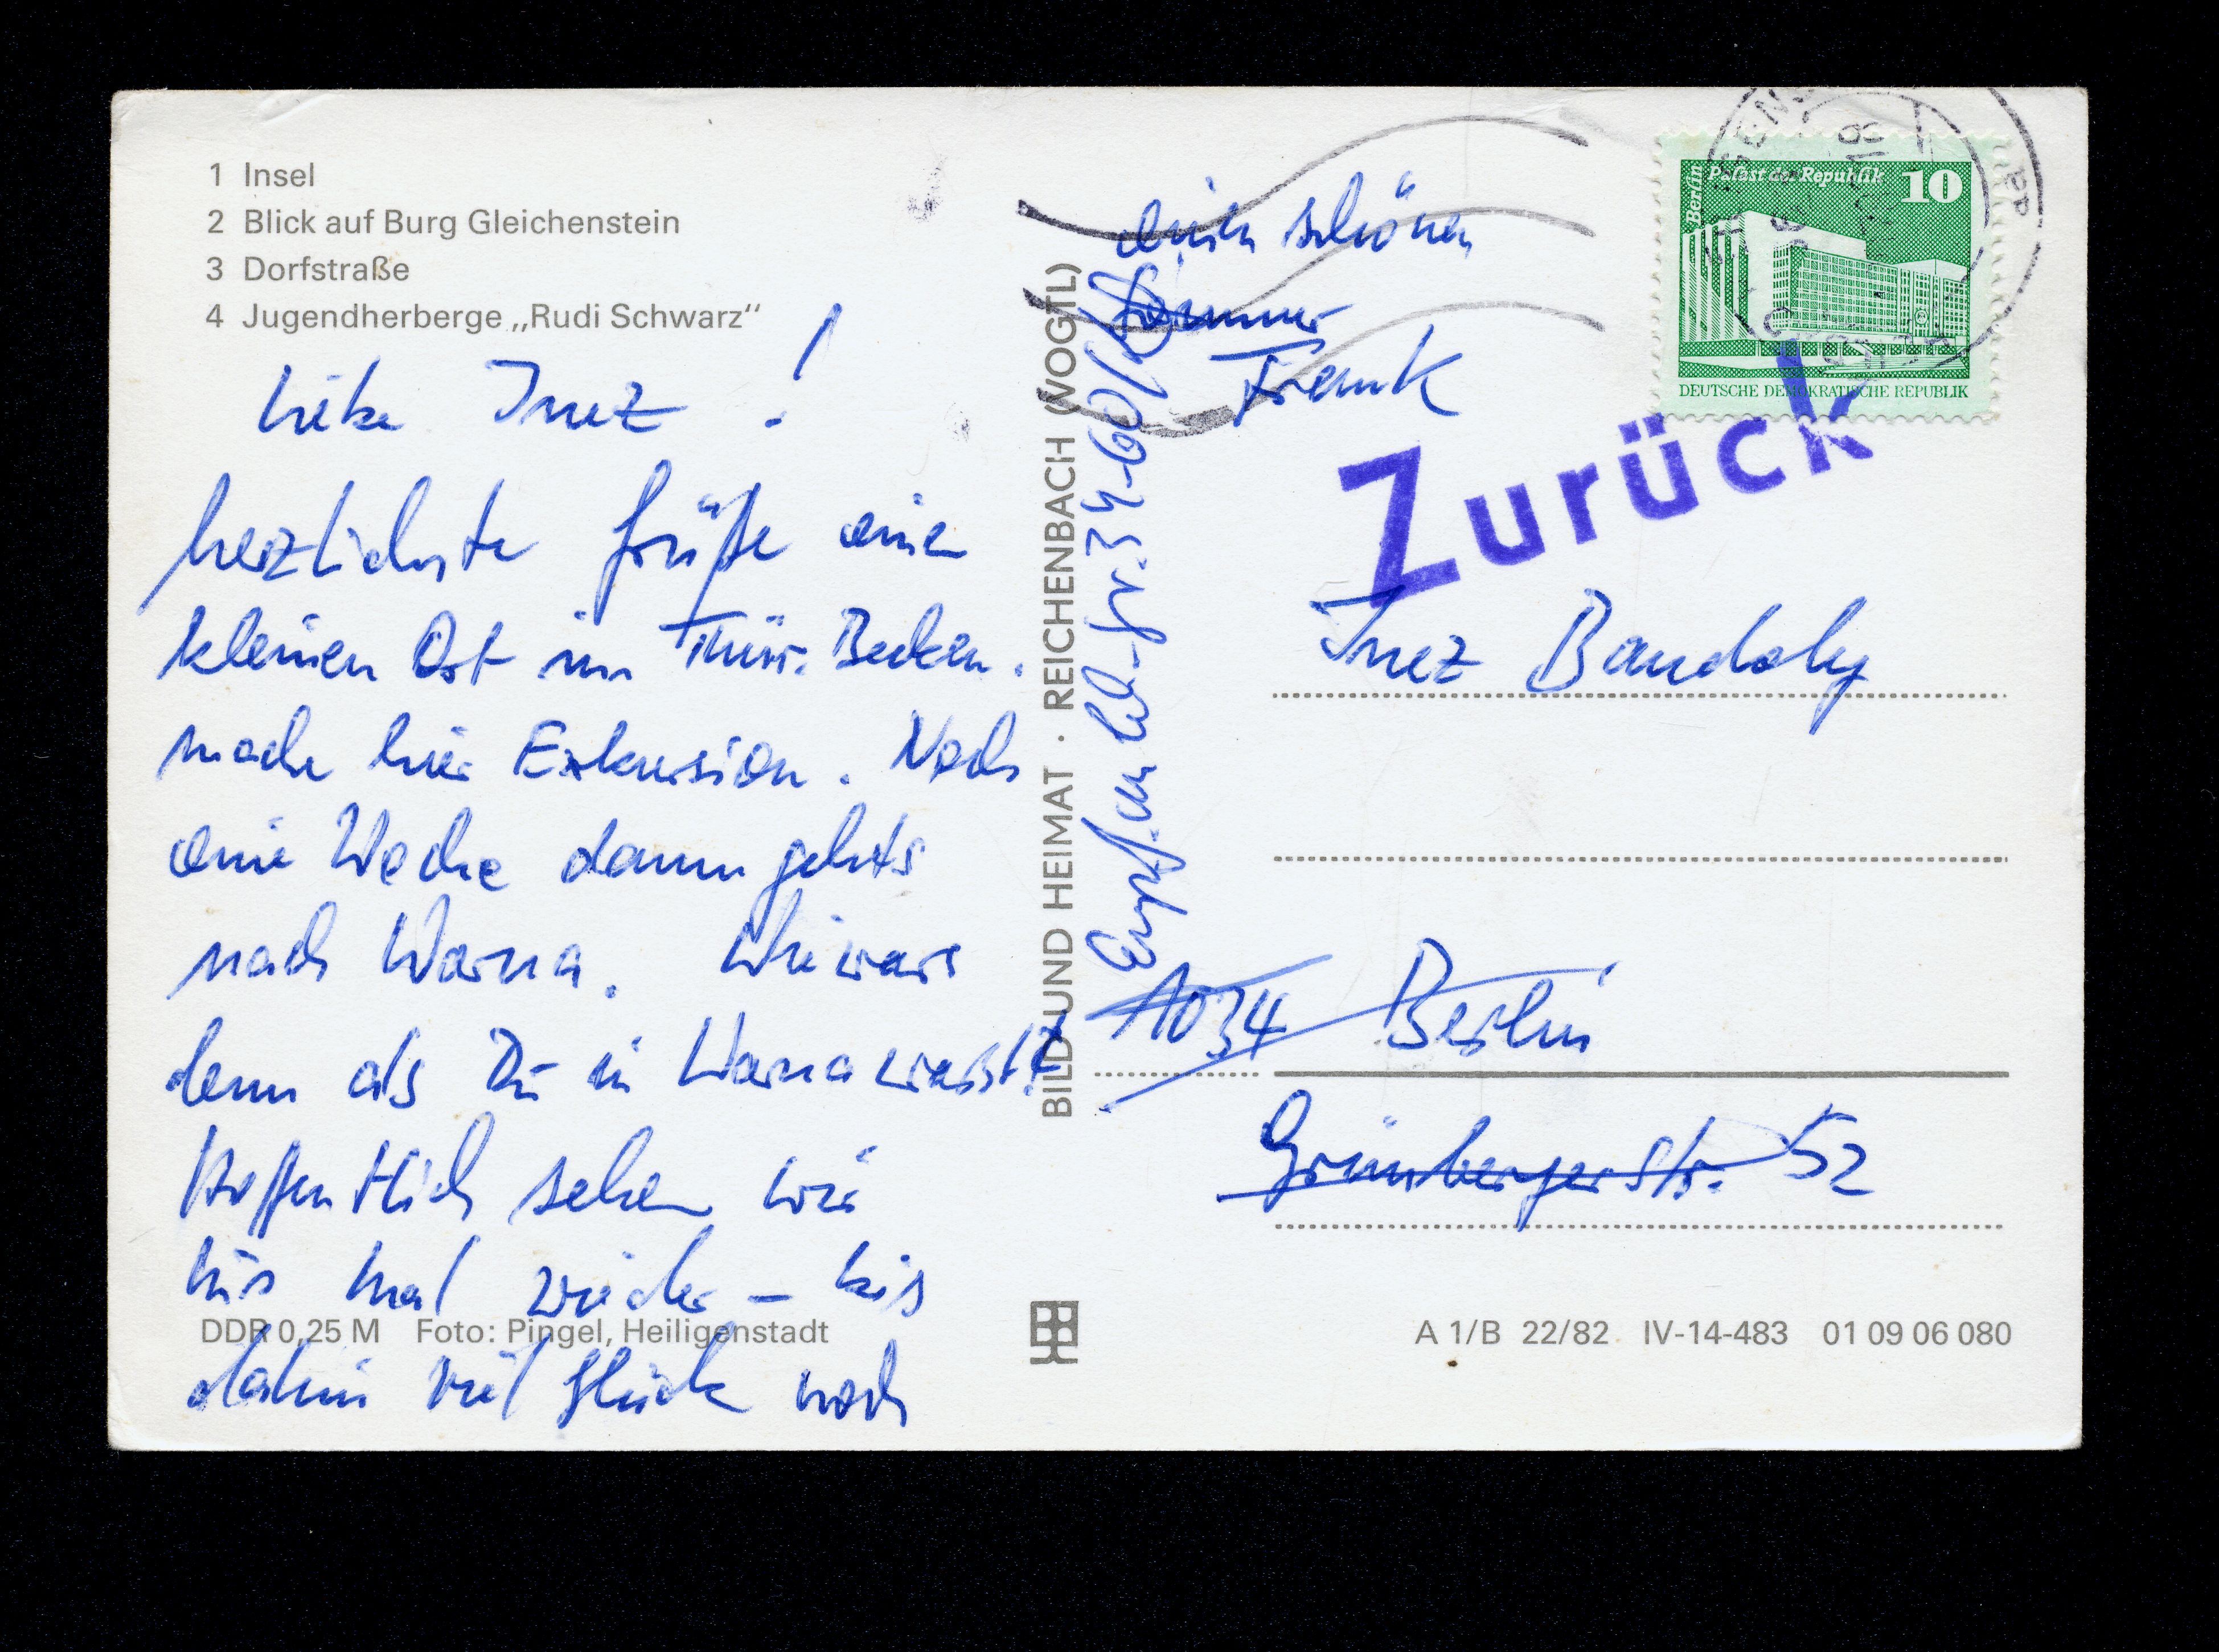 1 Insel
2 Blick auf Burg Gleichenstein
3 Dorfstraße
4 Jugendherberge „Rudi Schwarz“
Liebe Inez !
herzlichste Grüße einen
kleinen Ort im Thür. Becken.
mache hier Exkursion. Noch
eine Woche dann gehts
nach Warna. Wie wars
denn als Du in Warna warst?
Hoffentlich sehen wir
uns mal wieder – bis
dahin viel Glück noch
DDR 0,25 M Foto: Pingel, Heiligenstadt
BILD UND HEIMAT · REICHENBACH (VOGTL)
einen schönen
Sommer
Frank
Berlin Palast der Republik 10
DEUTSCHE DEMOKRATISCHE REPUBLIK
Zurück
Inez
1034 Berlin
Grünbergerstr. 52
A 1/B 22/82 IV-14-483 01 09 06 080